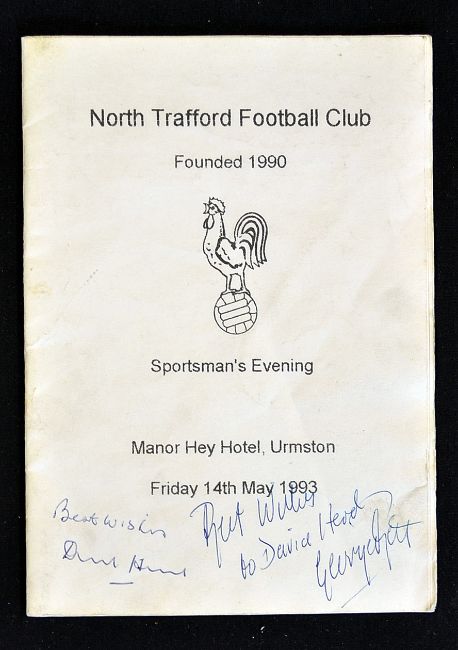 North Trafford Football Club
Founded 1990
Sportsman's Evening
Manor Hey Hotel, Urmston
Friday 14th May 1993
Best wishes
Best Wishes
to David